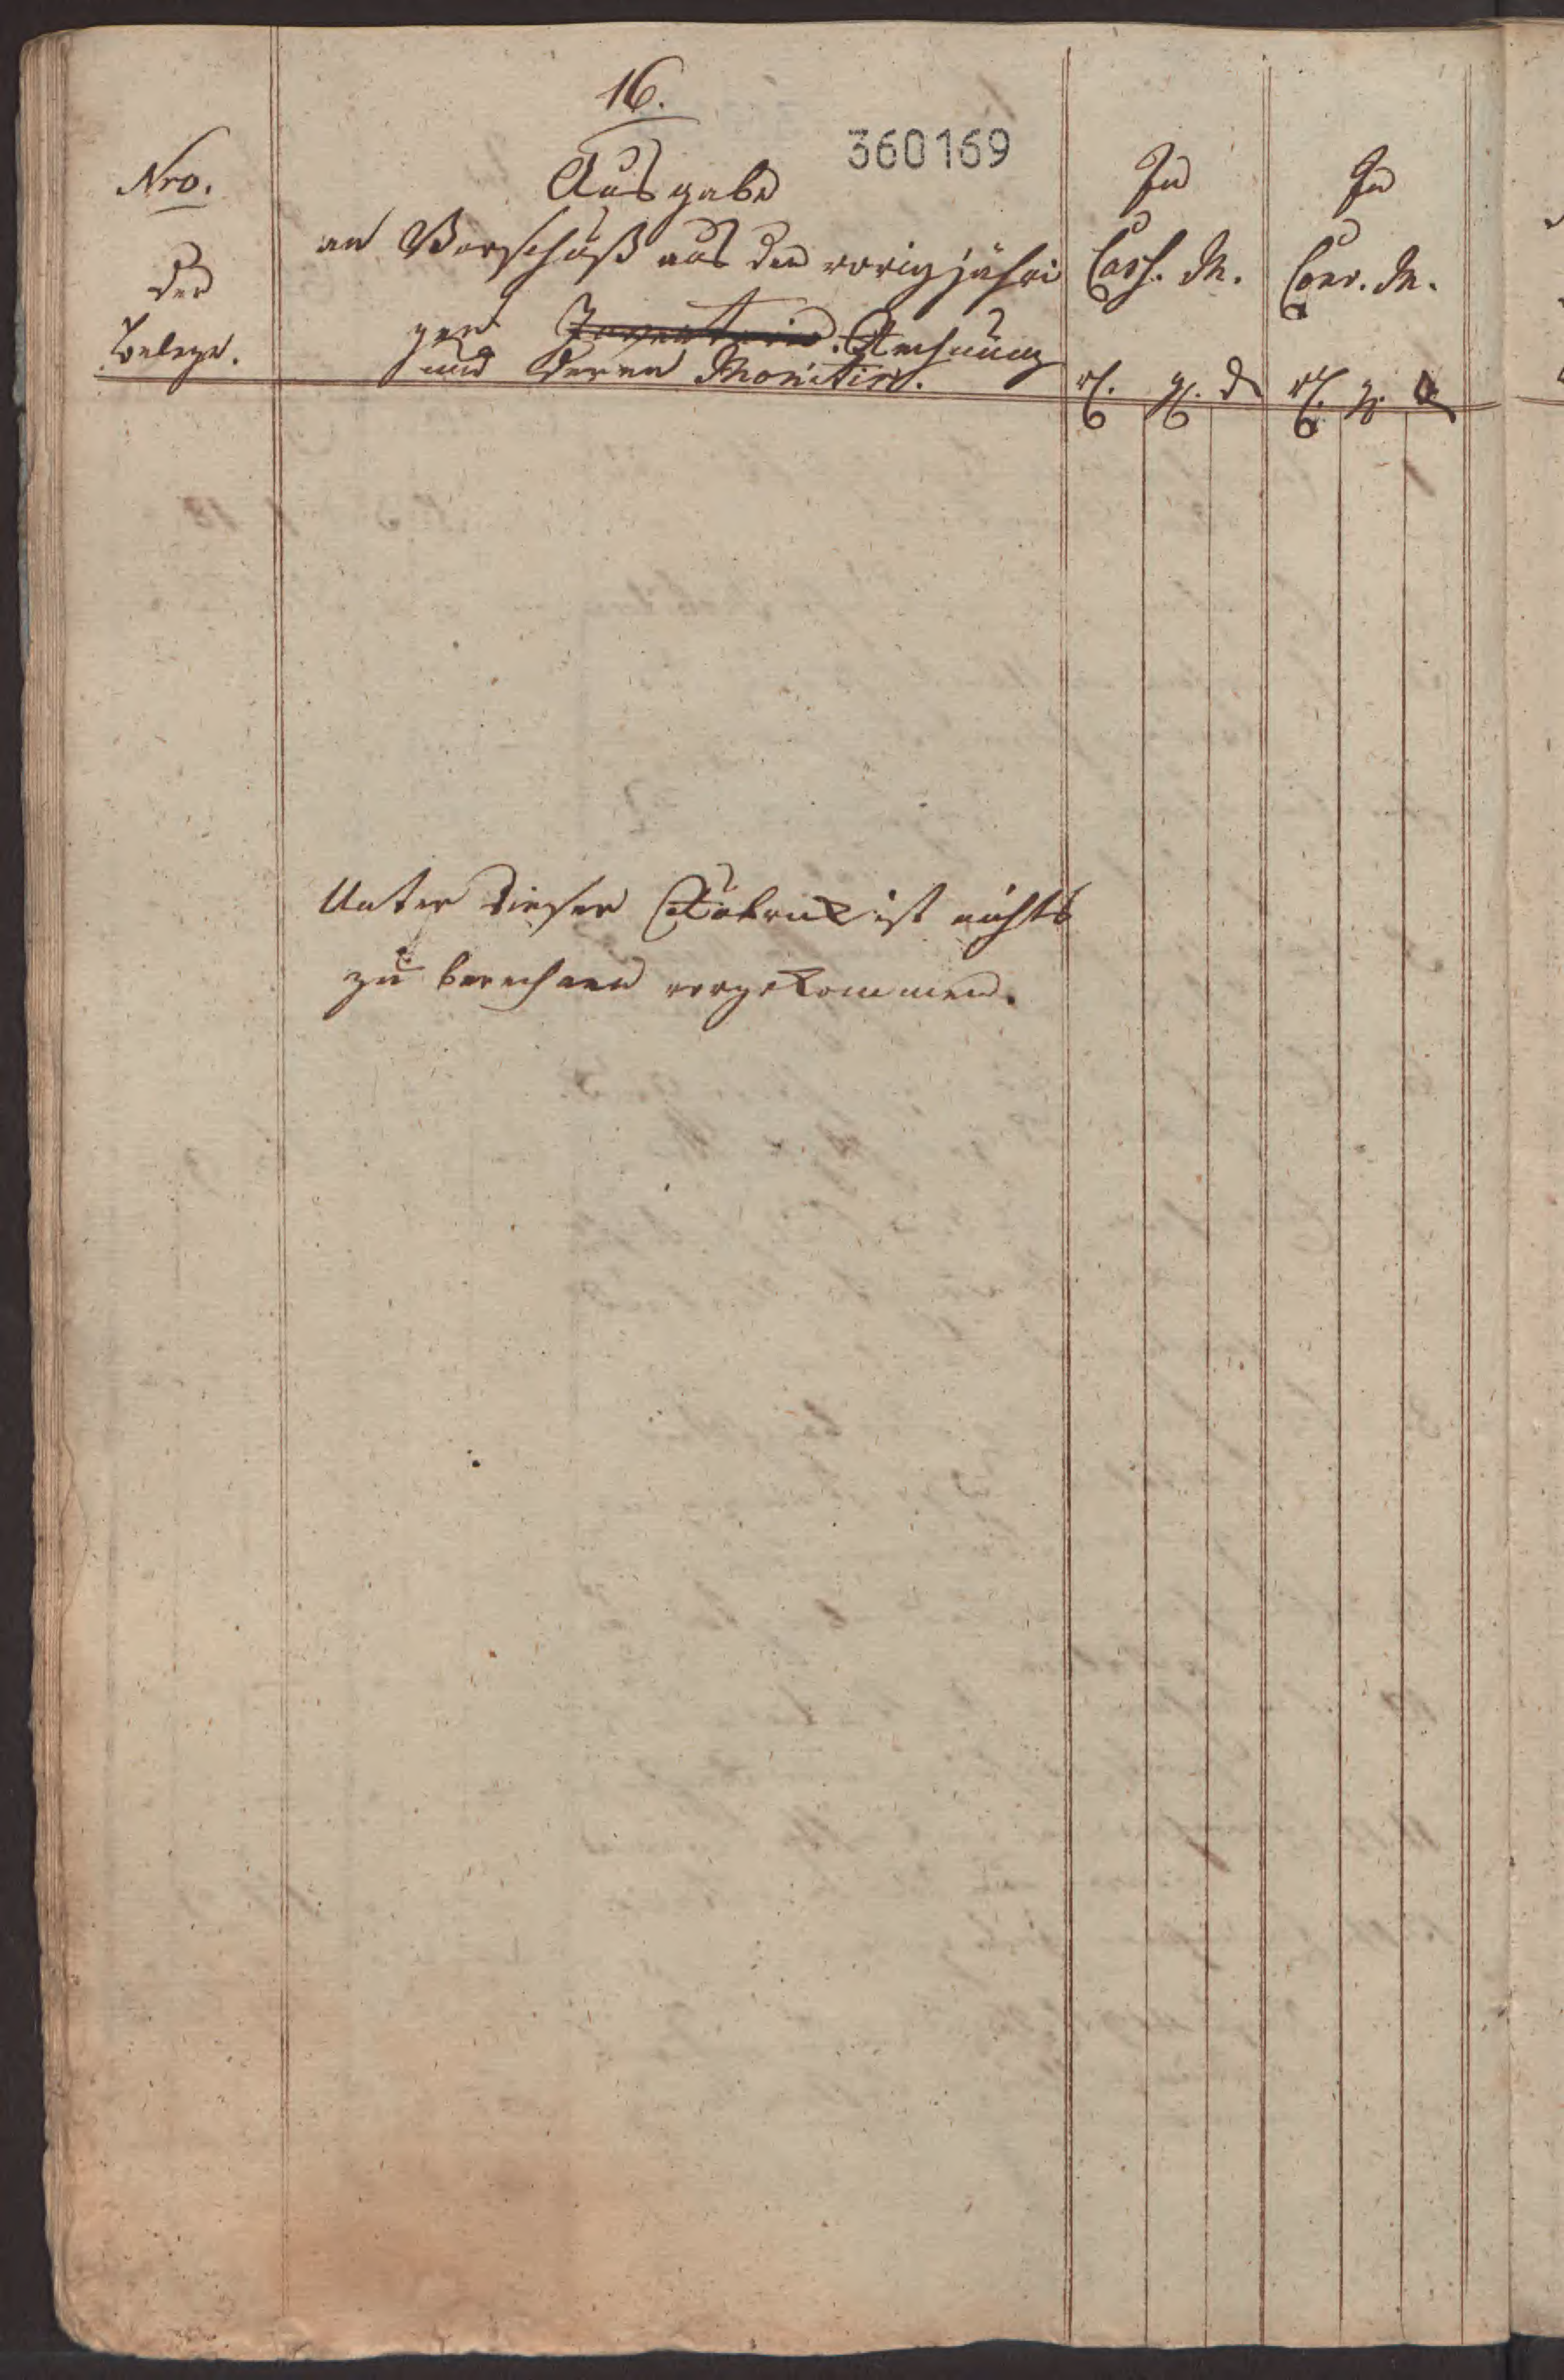 16.
360169
Nro.
der
Belege.
Ausgabe
an Vorschuß aus der vorigjähri
gen Inventarien Rechnung
und deren Monitis.
In
Cass. M.
rl. gl. d
In
Conv. M.
rl. gl. d
Unter dieser Rubruk ist nichts
zu berechnen vorgekommen.